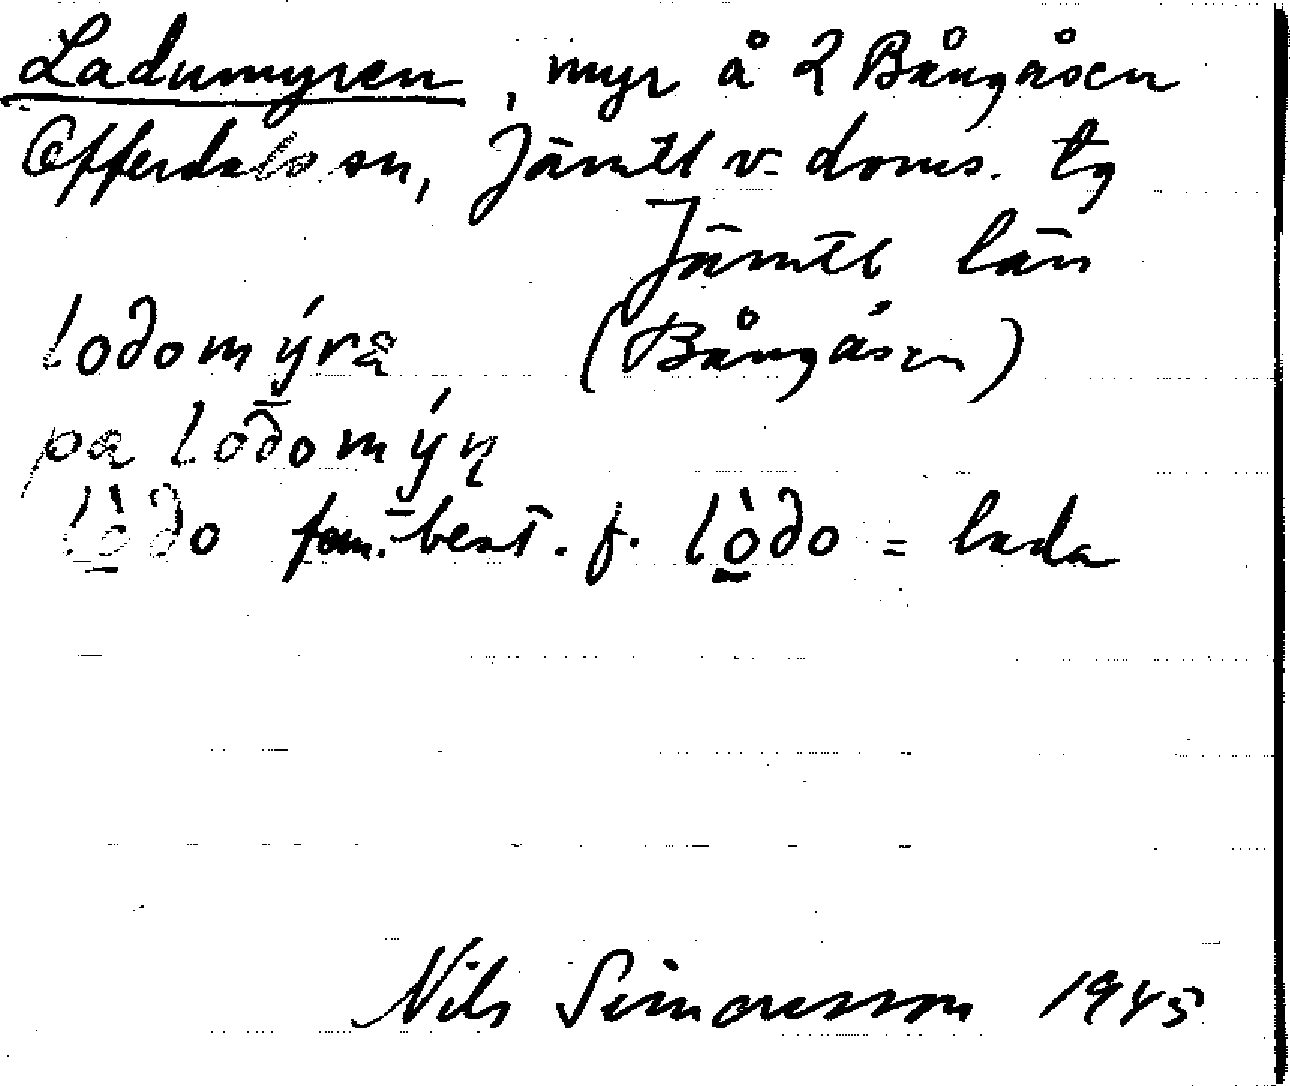 Ladumyren, myr å 2 Bångåsen
Offerdals sn, Jämtl v. doms. tg
Jämtl län
loðomýra (Bångåsen)
pa loðomýn
lòðo fem. best. f. lòðo = lada
Nils Simonsson 1945